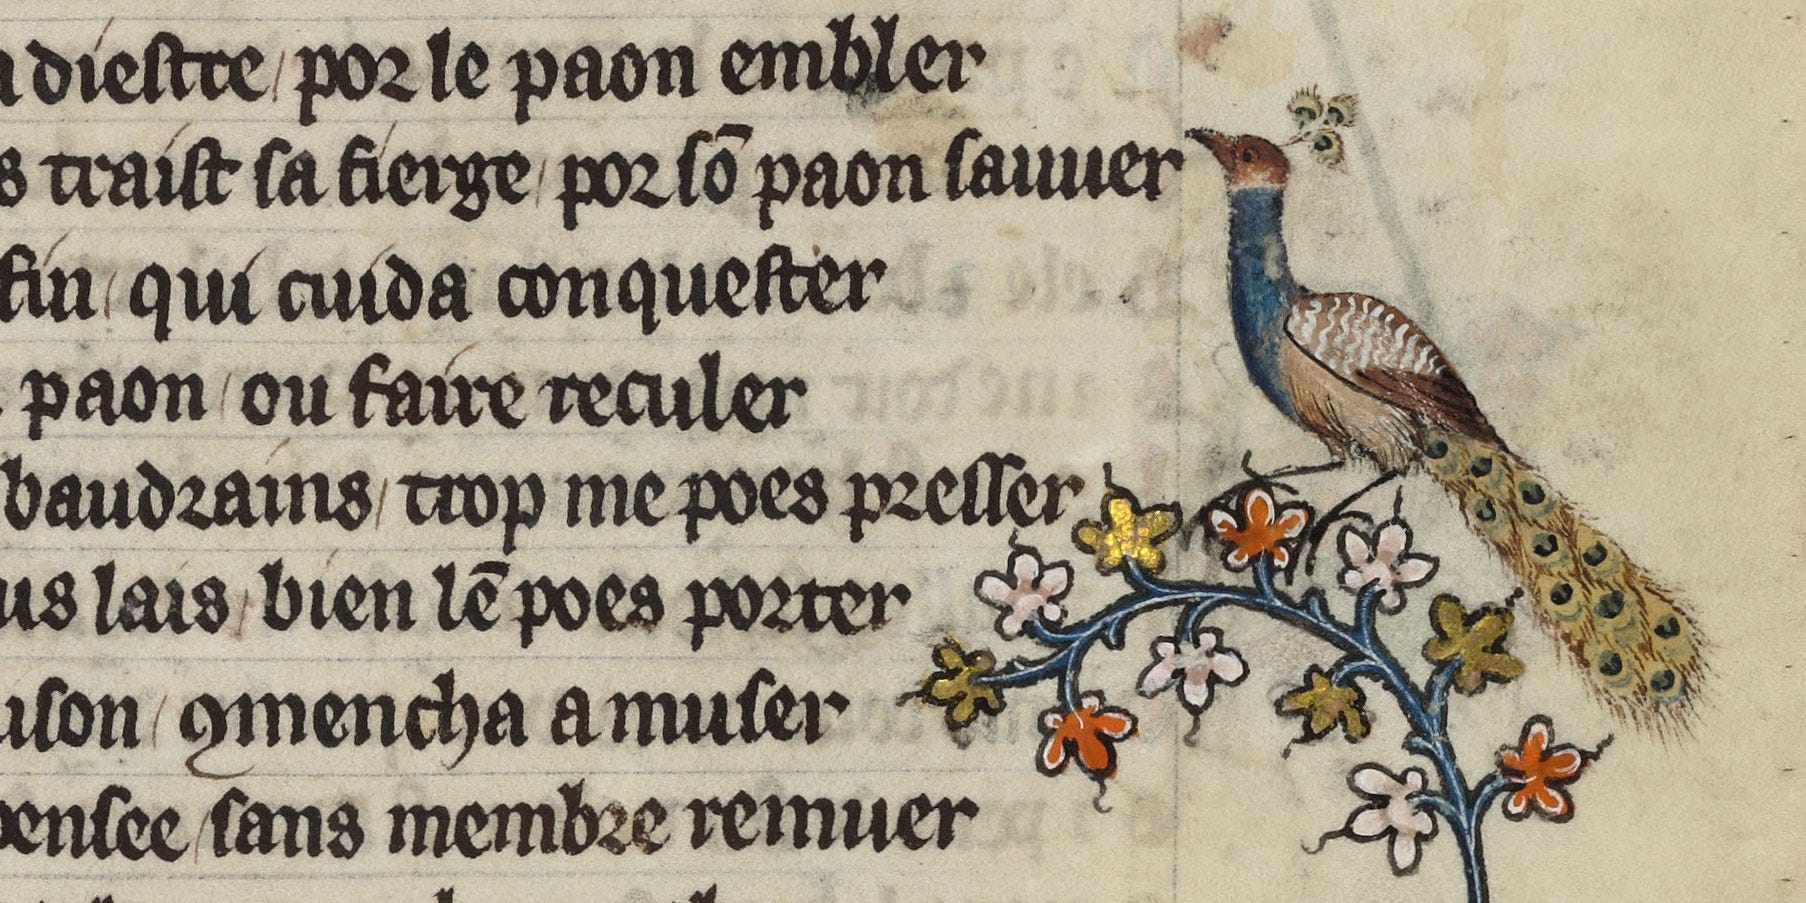 dieſtre / por le paon embler
s traiſt ſa fierge / por ſō paon ſauuer
fin / qui cuida conqueſter
paon / ou faire reculer
baudrains / trop me poes preſſer
us lais / bien lē poes porter
uiſon / ꝯmencha a muſer
penſee / ſans membre remuer